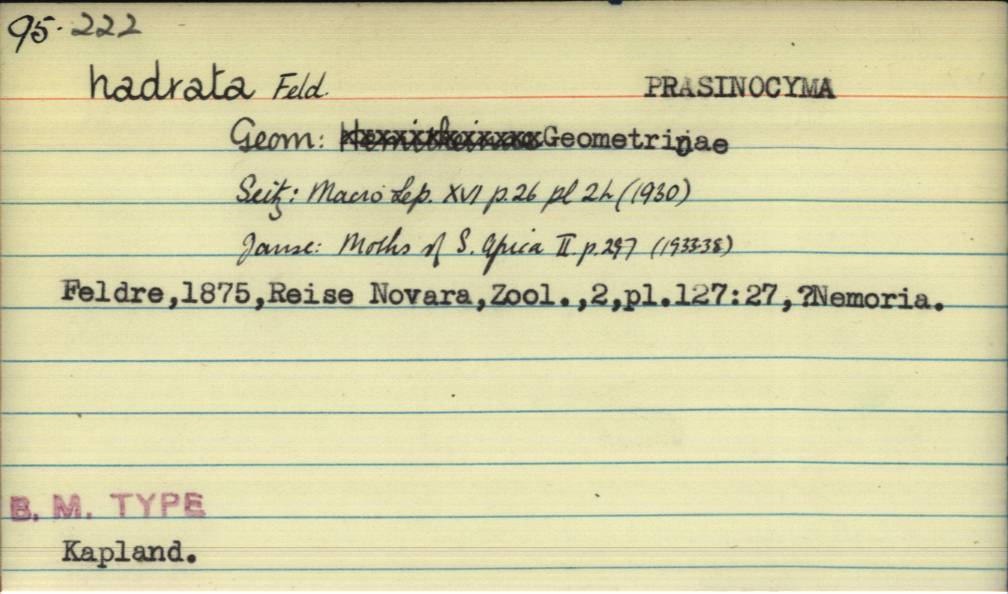 95.222
hadrata Feld. PRASINOCYMA
Geom: Hemitheinae Geometrinae
Seitz: Macro Lep. XVI p.26 pl 2h (1930)
Janse: Moths of S. Africa II. p.297 (1933-38)
Feldre,1875,Reise Novara,Zool.,2,pl.127:27,?Nemoria.
B. M. TYPE
Kapland.